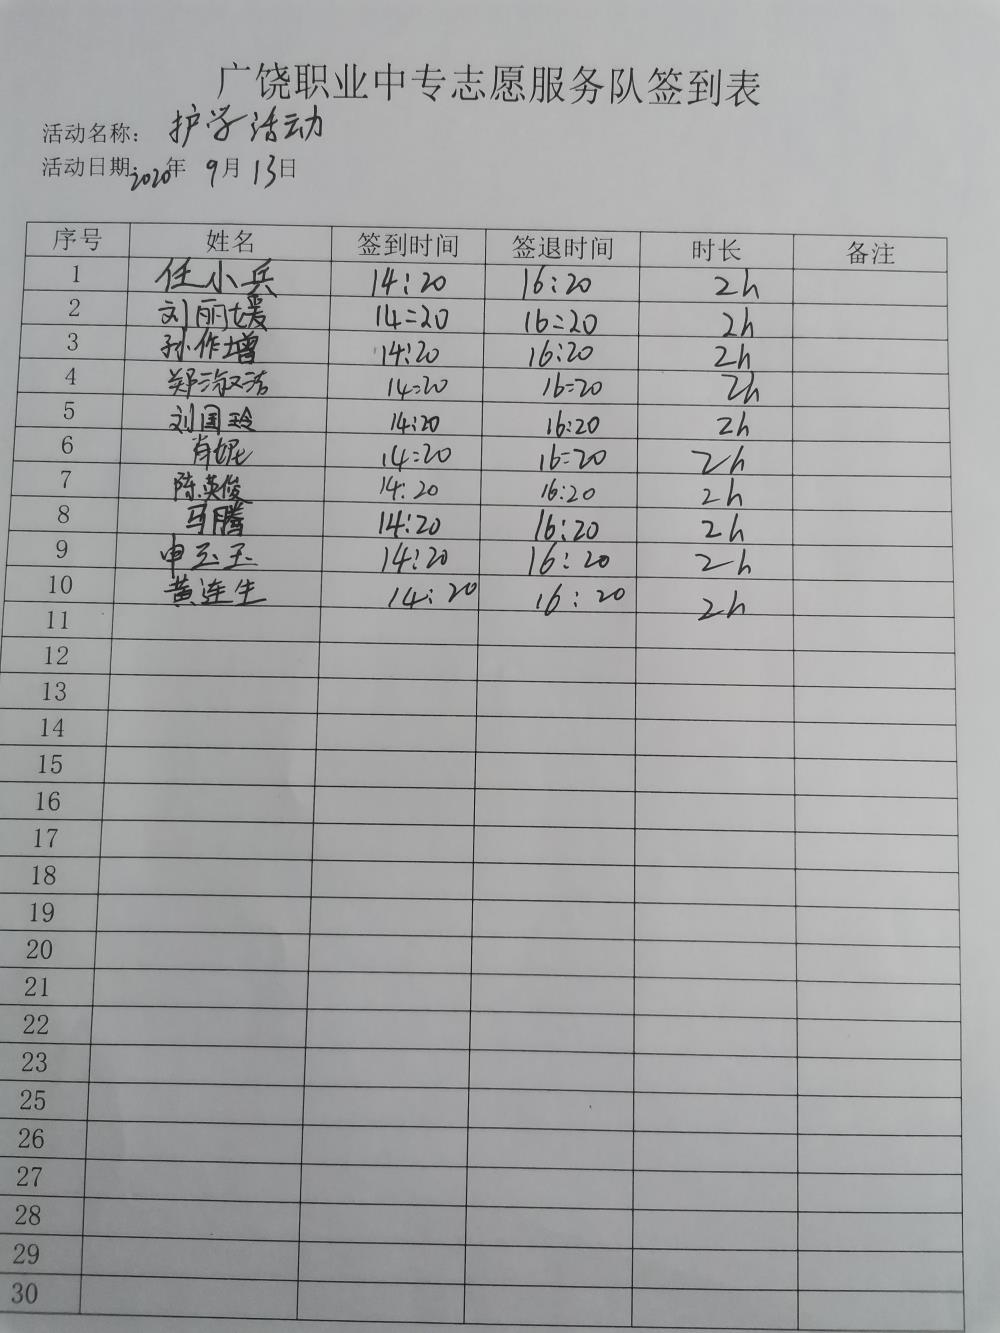 广饶职业中专志愿服务队签到表
活动名称: 护学活动
活动日期: 2020年 9月 13日
序号 姓名 签到时间 签退时间 时长 备注
1 任小兵 14:20 16:20 2h
2 刘丽媛 14:20 16:20 2h
3 孙作增 14:20 16:20 2h
4 郑淑洁 14:20 16:20 2h
5 刘国玲 14:20 16:20 2h
6 肖妮 14:20 16:20 2h
7 陈英俊 14:20 16:20 2h
8 马腾 14:20 16:20 2h
9 申玉玉 14:20 16:20 2h
10 黄连生 14:20 16:20 2h
11
12
13
14
15
16
17
18
19
20
21
22
23
25
26
27
28
29
30